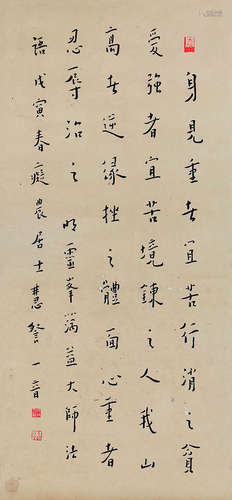 身見重者宜苦行消之貪
愛強者宜苦境鍊之人我山
高者逆緣挫之體面心重者
忍辱治之 明靈峯蕅益大師法
語戊寅春癡農居士慧詧一音